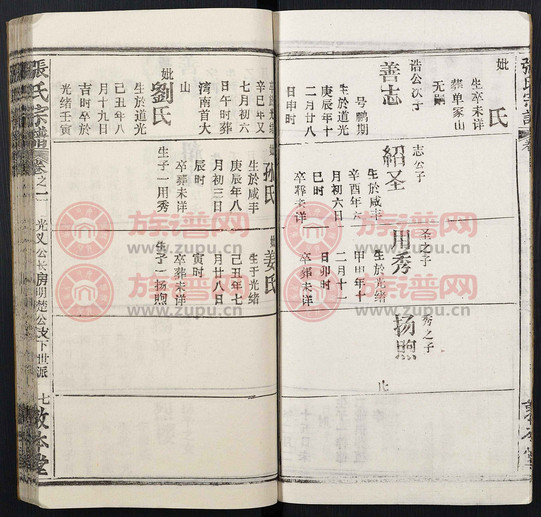 妣 氏
生卒未详
葬单冢山
无嗣
诰公次子
善志
号鹏期
庚辰年十
二月廿八
日申时
卒
辛巳年又
七月初六
日午时葬
濟南首大
山
妣 劉氏
生於道光
己丑年八
月十九日
吉时卒於
光绪壬寅
志公子
紹圣
生於咸丰
辛酉年
月初六日
巳时
卒葬未详
妣 孙氏
生於咸丰
庚辰年八
月初三日
辰时
卒葬未详
生子一用秀
圣之子
用秀
生於光绪
甲申年十
二月十一
日卯时
卒葬未详
妣 姜氏
生于光绪
己丑年七
月廿八日
寅时
卒葬未详
生子一扬煦
秀之子
扬煦
比
張氏宗譜
卷之一
光义公长房明楚公支下世派
七
敦本堂
族谱网
www.zupu.cn
族谱网
www.zupu.cn